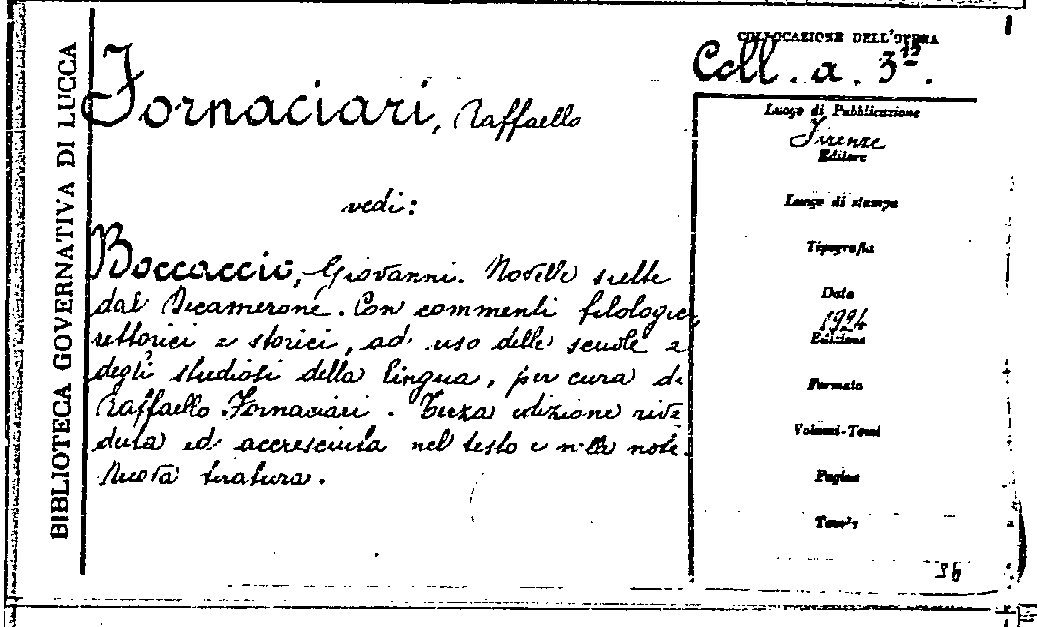 BIBLIOTECA GOVERNATIVA DI LUCCA
Fornaciari, Raffaello
vedi:
Boccaccio, Giovanni. Novelle scelte
dal Decamerone. Con commenti filologici,
rettorici e storici, ad uso delle scuole e
degli studiosi della lingua, per cura di
Raffaello Fornaciari. Terza edizione rive
duta ed accresciuta nel testo e nelle note.
Nuova tiratura.
COLLOCAZIONE DELL'OPERA
Coll. a. 3 12.
Luogo di Pubblicazione
Firenze
Editore
Luogo di stampa
Tipografia
Data
1924
Edizione
Formato
Volumi-Tomi
Pagine
Tavole